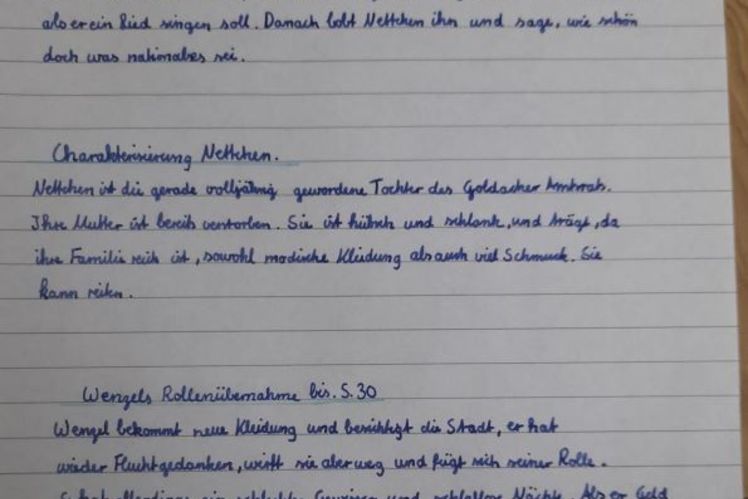 als er ein Lied singen soll. Danach lobt Nettchen ihn und sage, wie schön
doch was nationales sei.
Charakterisierung Nettchen.
Nettchen ist die gerade volljährig gewordene Tochter des Goldacher Amtsrats.
Ihre Mutter ist bereits verstorben. Sie ist hübsch und schlank, und trägt, da
ihre Familie reich ist, sowohl modische Kleidung als auch viel Schmuck. Sie
kann reiten.
Wenzels Rollenübernahme bis S.30
Wenzel bekommt neue Kleidung und besichtigt die Stadt, er hat
wieder Fluchtgedanken, wirft sie aber weg und fügt sich seiner Rolle.
ein schlechtes Gewissen und schlaflose Nächte. Als er Geld